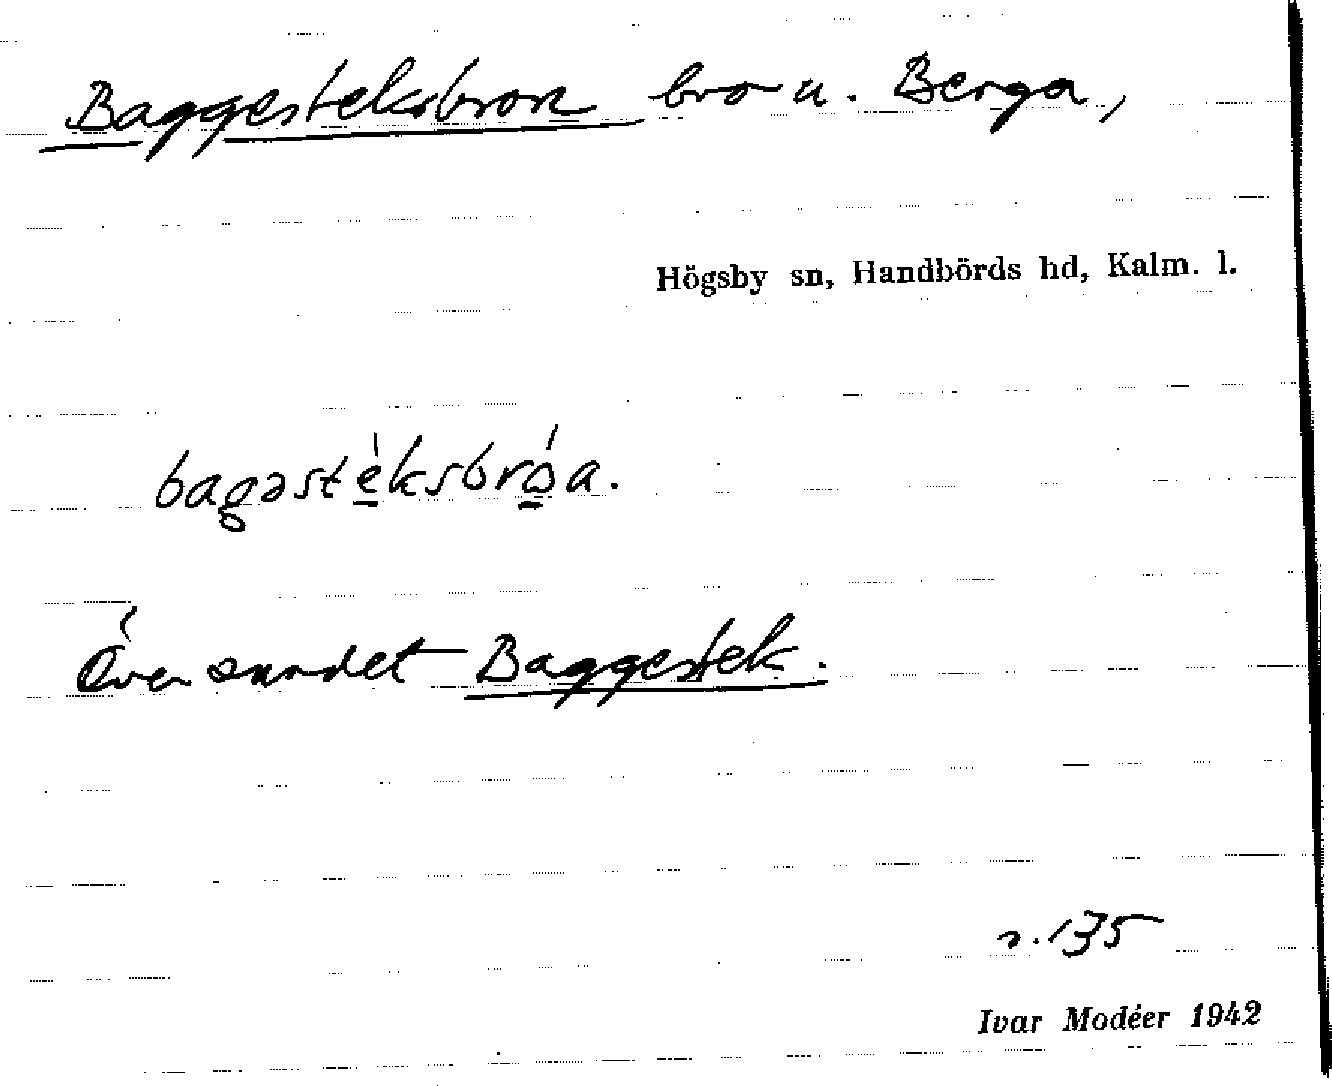 Baggesteksbron bro u. Berga,
Högsby sn, Handbörds hd, Kalm. l.
bagəstéksbróa.
Över sundet Baggestek.
s. 135
Ivar Modéer 1942